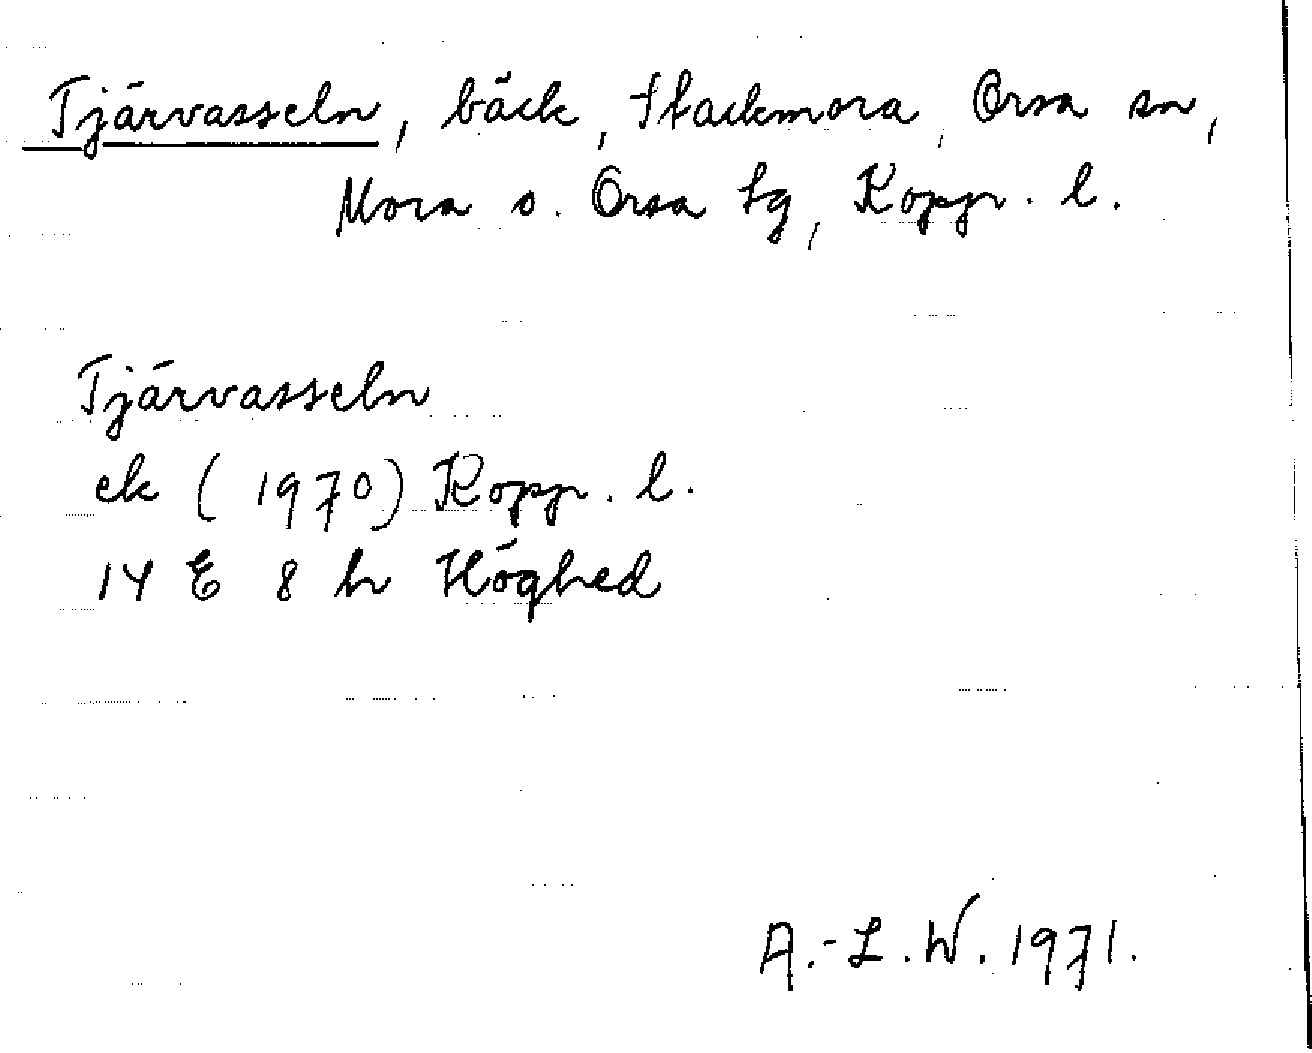 Tjärvasseln, bäck, Stackmora, Orsa sn,
Mora o. Orsa tg, Kopp. l.
Tjärvasseln
ek (1970) Kopp. l.
14 E 8 h Höghed
A.-L.W. 1971.